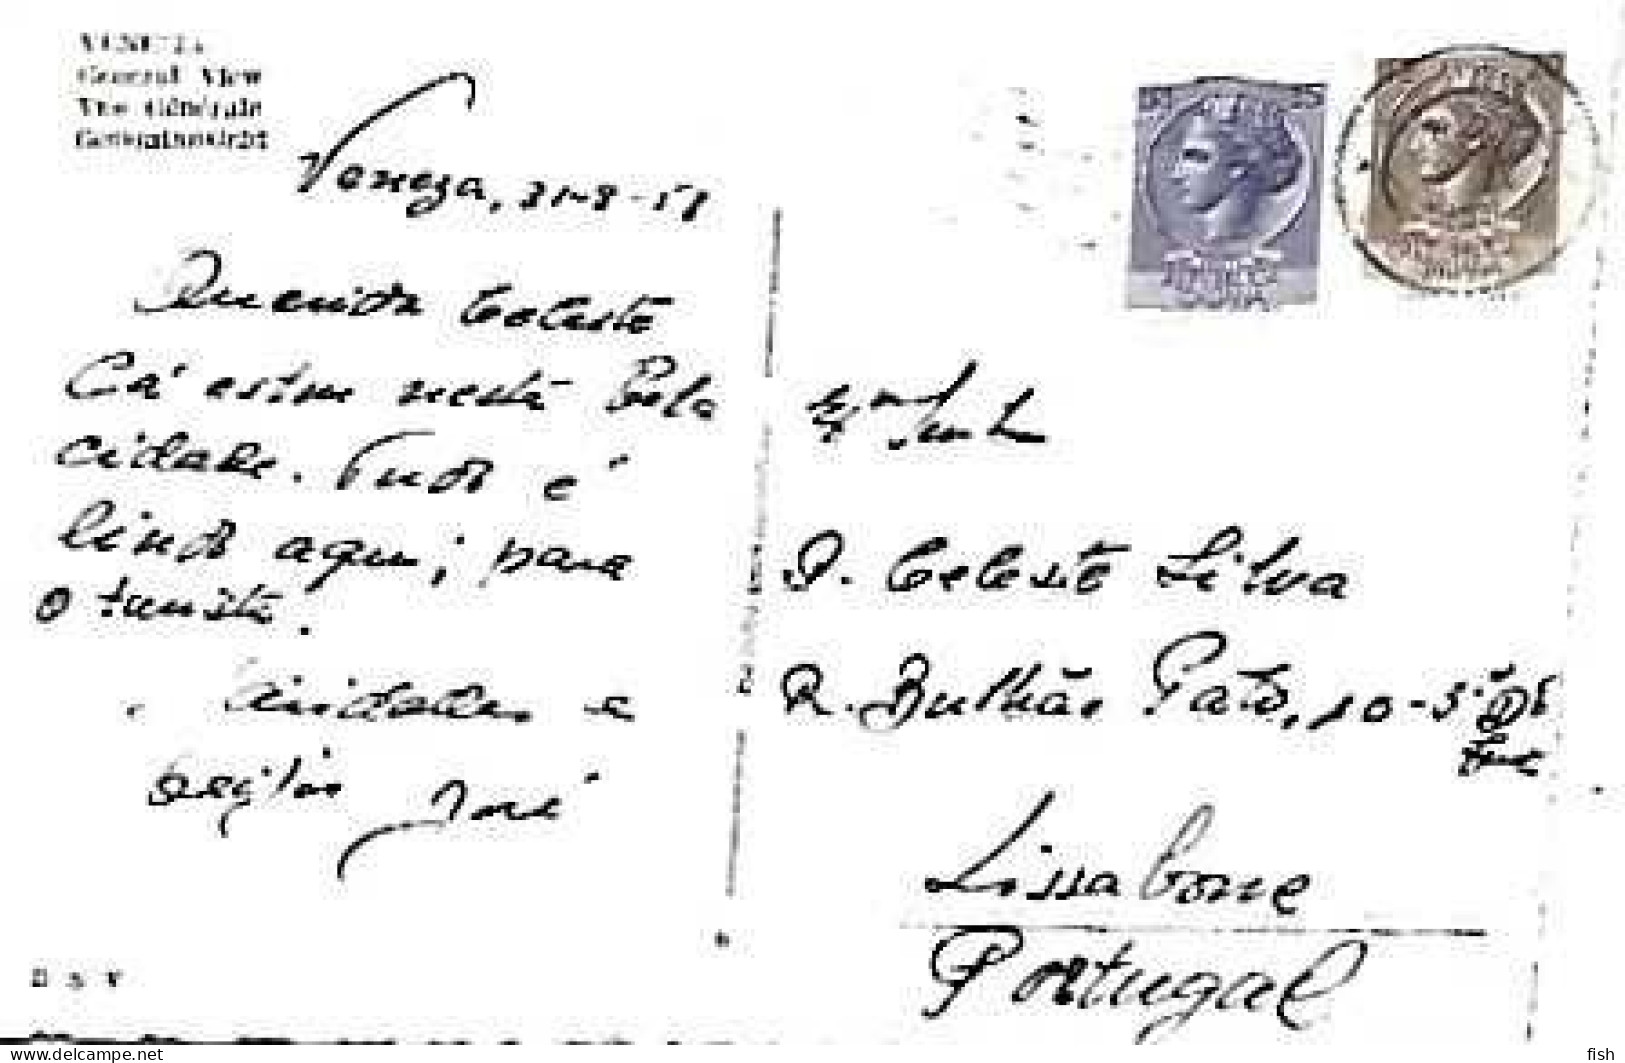 VENEZIA
General View
Vue Générale
Generalansicht
Veneza, 31-8-58
Querida Celeste
Cá estou nesta bela
cidade. Tudo é
lindo aqui; para
o turista.
Saudades e
beijos José
Exma Senhora
D. Celeste Silva
R. Bulhão Pato, 10-3º
Lissabone
Portugal
www.delcampe.net
fish